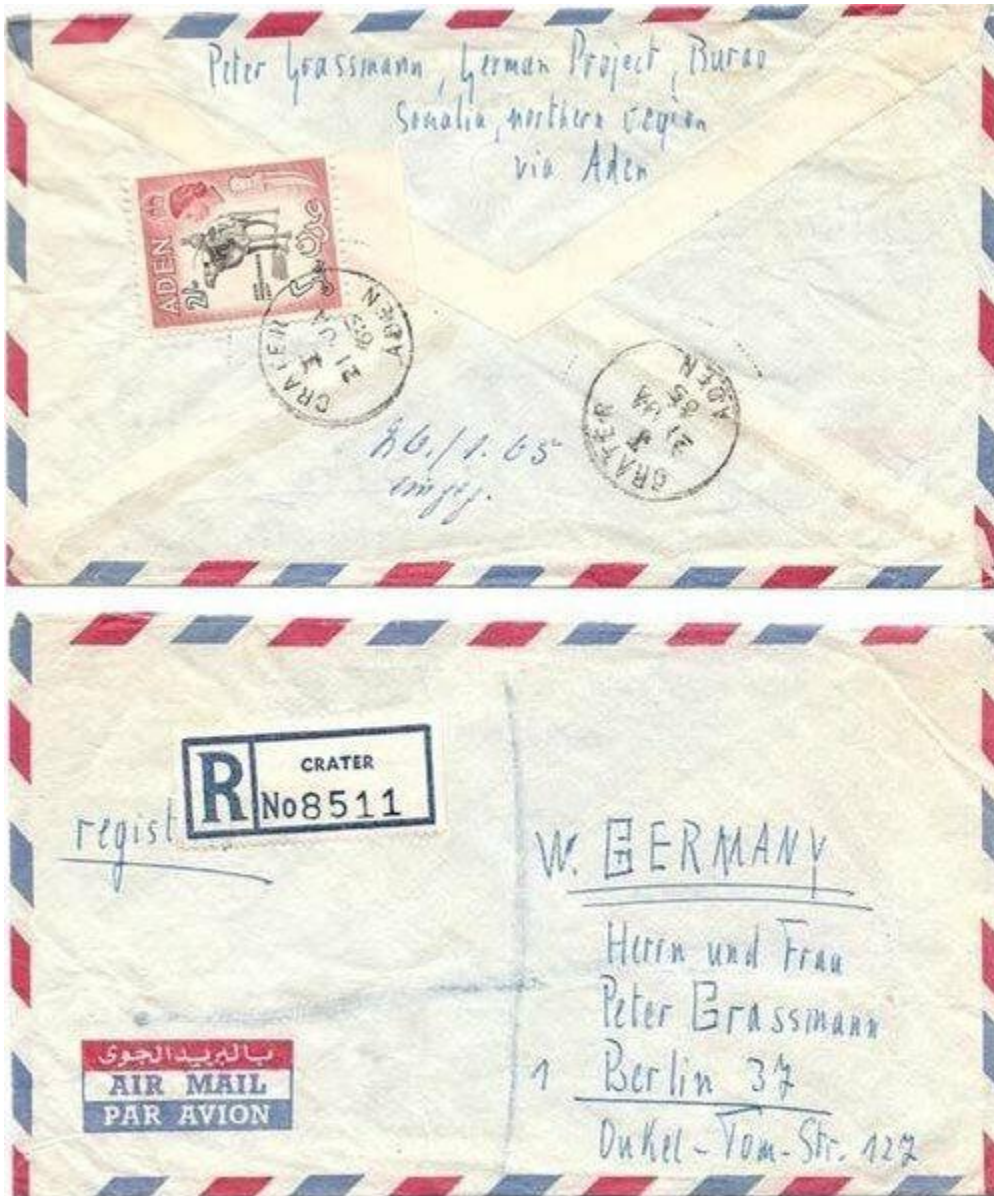 Peter Grassmann, German Project, Burao
Somalia, northern region
via Aden
ADEN
2/-
عدن
CRATER
21 JA
65
ADEN
CRATER
21 JA
65
ADEN
26./1.65
eingeg.
R
CRATER
No 8511
regist
W. GERMANY
Herrn und Frau
Peter Grassmann
1 Berlin 37
Onkel-Tom-Str. 127
بالبريد الجوى
AIR MAIL
PAR AVION